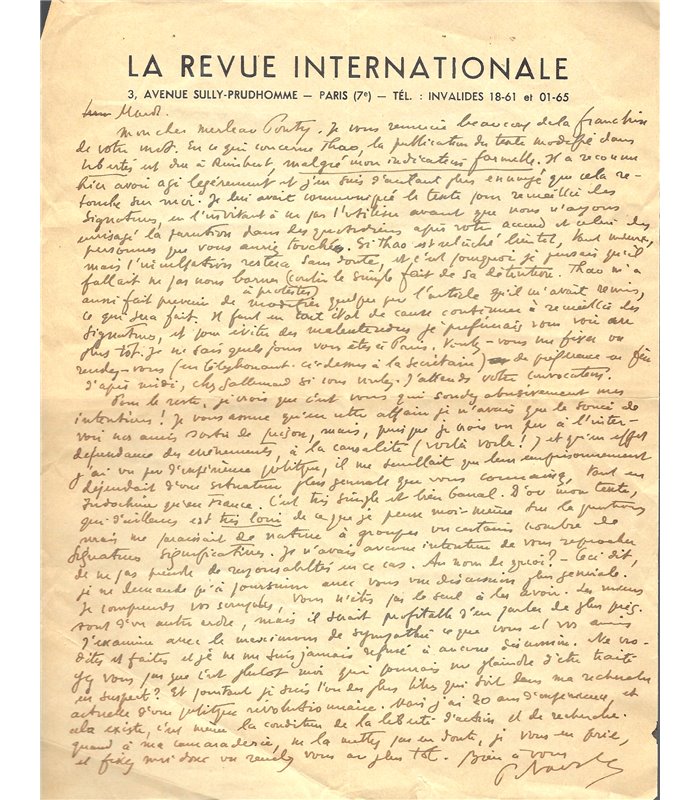 LA REVUE INTERNATIONALE
3, AVENUE SULLY-PRUDHOMME — PARIS (7e) — TÉL. : INVALIDES 18-61 et 01-65
Mardi
Mon cher Merleau Ponty. Je vous remercie beaucoup de la franchise
de votre mot. En ce qui concerne Thao, la publication du texte modifié dans
Libertés est due à Rimbert, malgré mon indication formelle. Il a reconnu
hier avoir agi légèrement et j'en suis d'autant plus ennuyé que cela re-
tombe sur moi. Je lui avait communiqué le texte pour recueillir des
signatures, en l'invitant à ne pas l'utiliser avant que nous n'ayons
envisagé la parution dans les quotidiens après votre accord et celui des
personnes que vous auriez touchées. Si Thao est relâché bientôt, tant mieux,
mais l'inculpation restera sans doute, et c'est pourquoi je pensais qu'il
fallait ne pas nous borner (contre le simple fait de sa détention. Thao m'a
à protester)
aussi fait prévenir de modifier quelque peu l'article qu'il m'avait remis,
ce qui sera fait. Il faut en tout état de cause continuer à recueillir des
signatures, et pour éviter des malentendus je préférerais vous voir au
plus tôt. Je ne sais quels jours vous êtes à Paris. Voulez-vous me fixer un
rendez-vous (en téléphonant ci-dessus à la secrétaire) de préférence en fin
d'après midi, chez Gallimard si vous voulez. J'attends votre convocation.
Pour le reste, je crois que c'est vous qui sondez abusivement mes
intentions ! Je vous assure qu'en cette affaire je n'avais que le souci de
voir nos amis sortir de prison, mais, puisque je crois un peu à l'inter-
dépendance des événements, à la causalité (voilà voilà !) et qu'en effet
j'ai un peu d'expérience politique, il me semblait que leur emprisonnement
dépendait d'une situation plus générale que vous connaissez, tant en
Indochine qu'en France. C'est très simple et bien banal. D'où mon texte,
qui d'ailleurs est très loin de ce que je pense moi-même sur la question
mais me paraissait de nature à grouper un certain nombre de
signatures significatives. Je n'avais aucune intention de vous reprocher
de ne pas prendre de responsabilités en ce cas. Au nom de quoi ? — Ceci dit,
je ne demande qu'à poursuivre avec vous une discussion plus générale.
Je comprends vos scrupules, vous n'êtes pas le seul à les avoir. Les miens
sont d'un autre ordre, mais il serait profitable d'en parler de plus près.
J'examine avec le maximum de sympathie ce que vous et vos amis
dites et faites et je ne me suis jamais refusé à aucune discussion. Ne cro-
yez vous pas que c'est plutôt moi qui pourrais me plaindre d'être traité
en suspect ? Et pourtant je suis l'un des plus libres qui soit dans ma recherche
actuelle d'une politique révolutionnaire. Mais j'ai 20 ans d'expérience, et
cela existe, c'est même la condition de la liberté d'action et de recherche.
quand à ma camaraderie, ne la mettez pas en doute, je vous en prie,
et fixez moi donc un rendez vous au plus tôt. Bien à vous
P. Naville